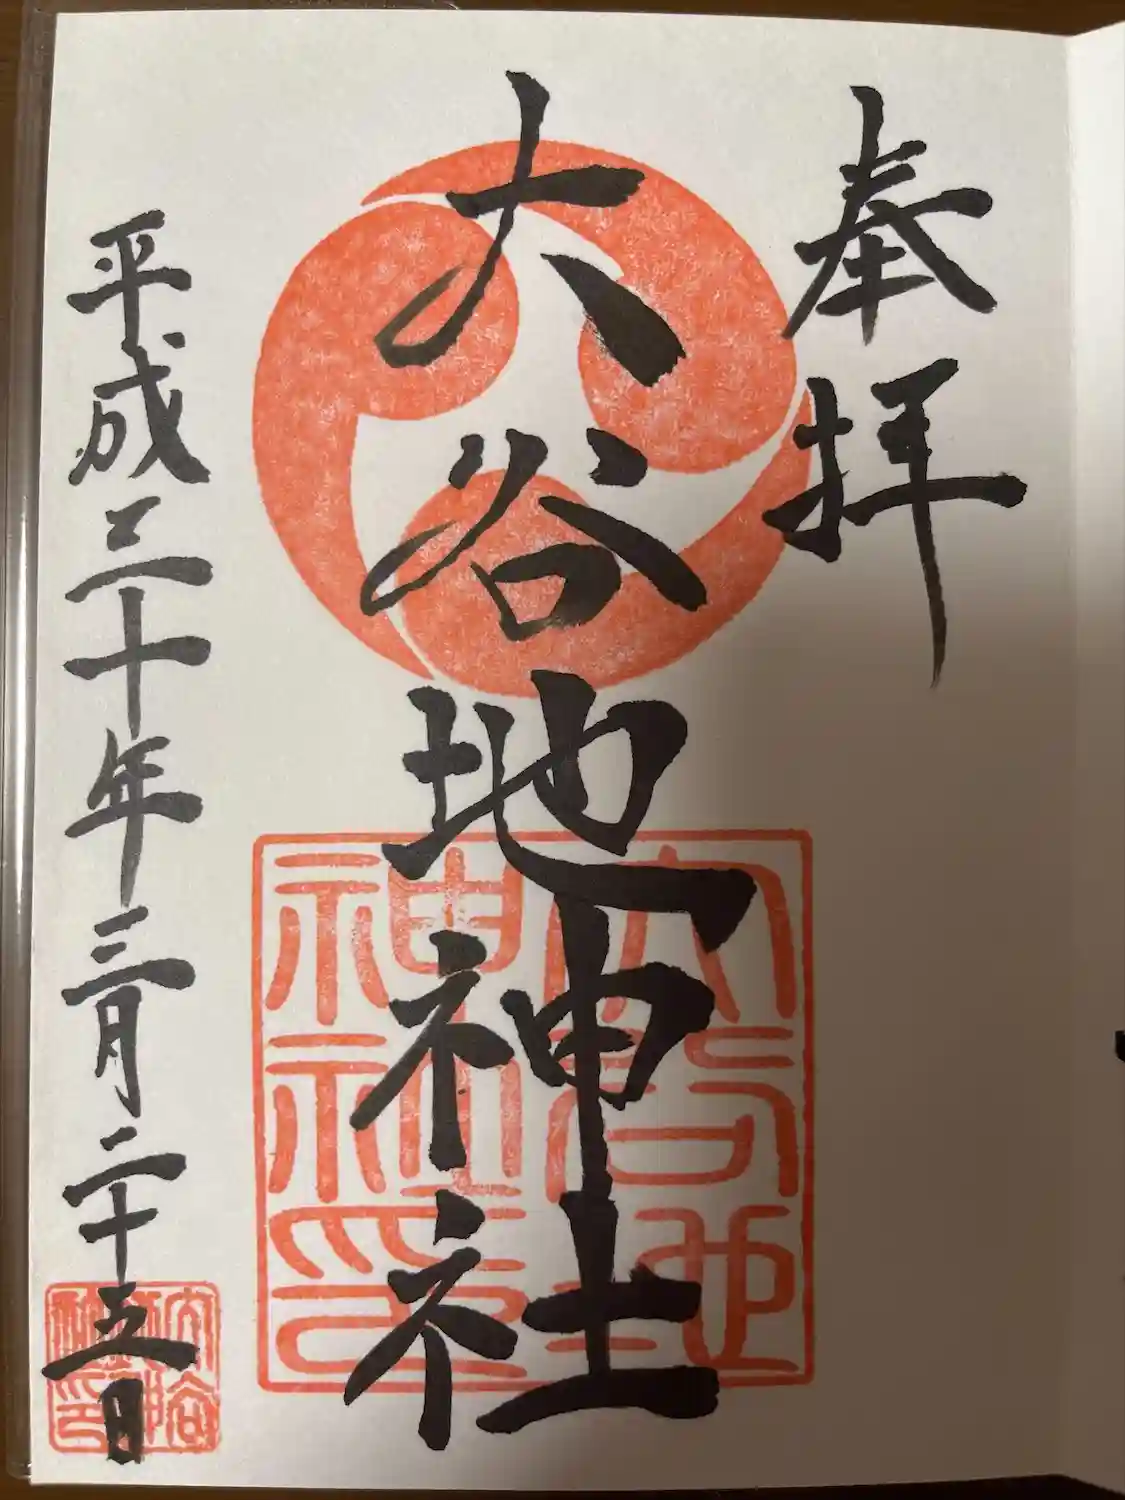 奉拝
大谷地神社
大谷地
神社印
平成三十年三月二十五日